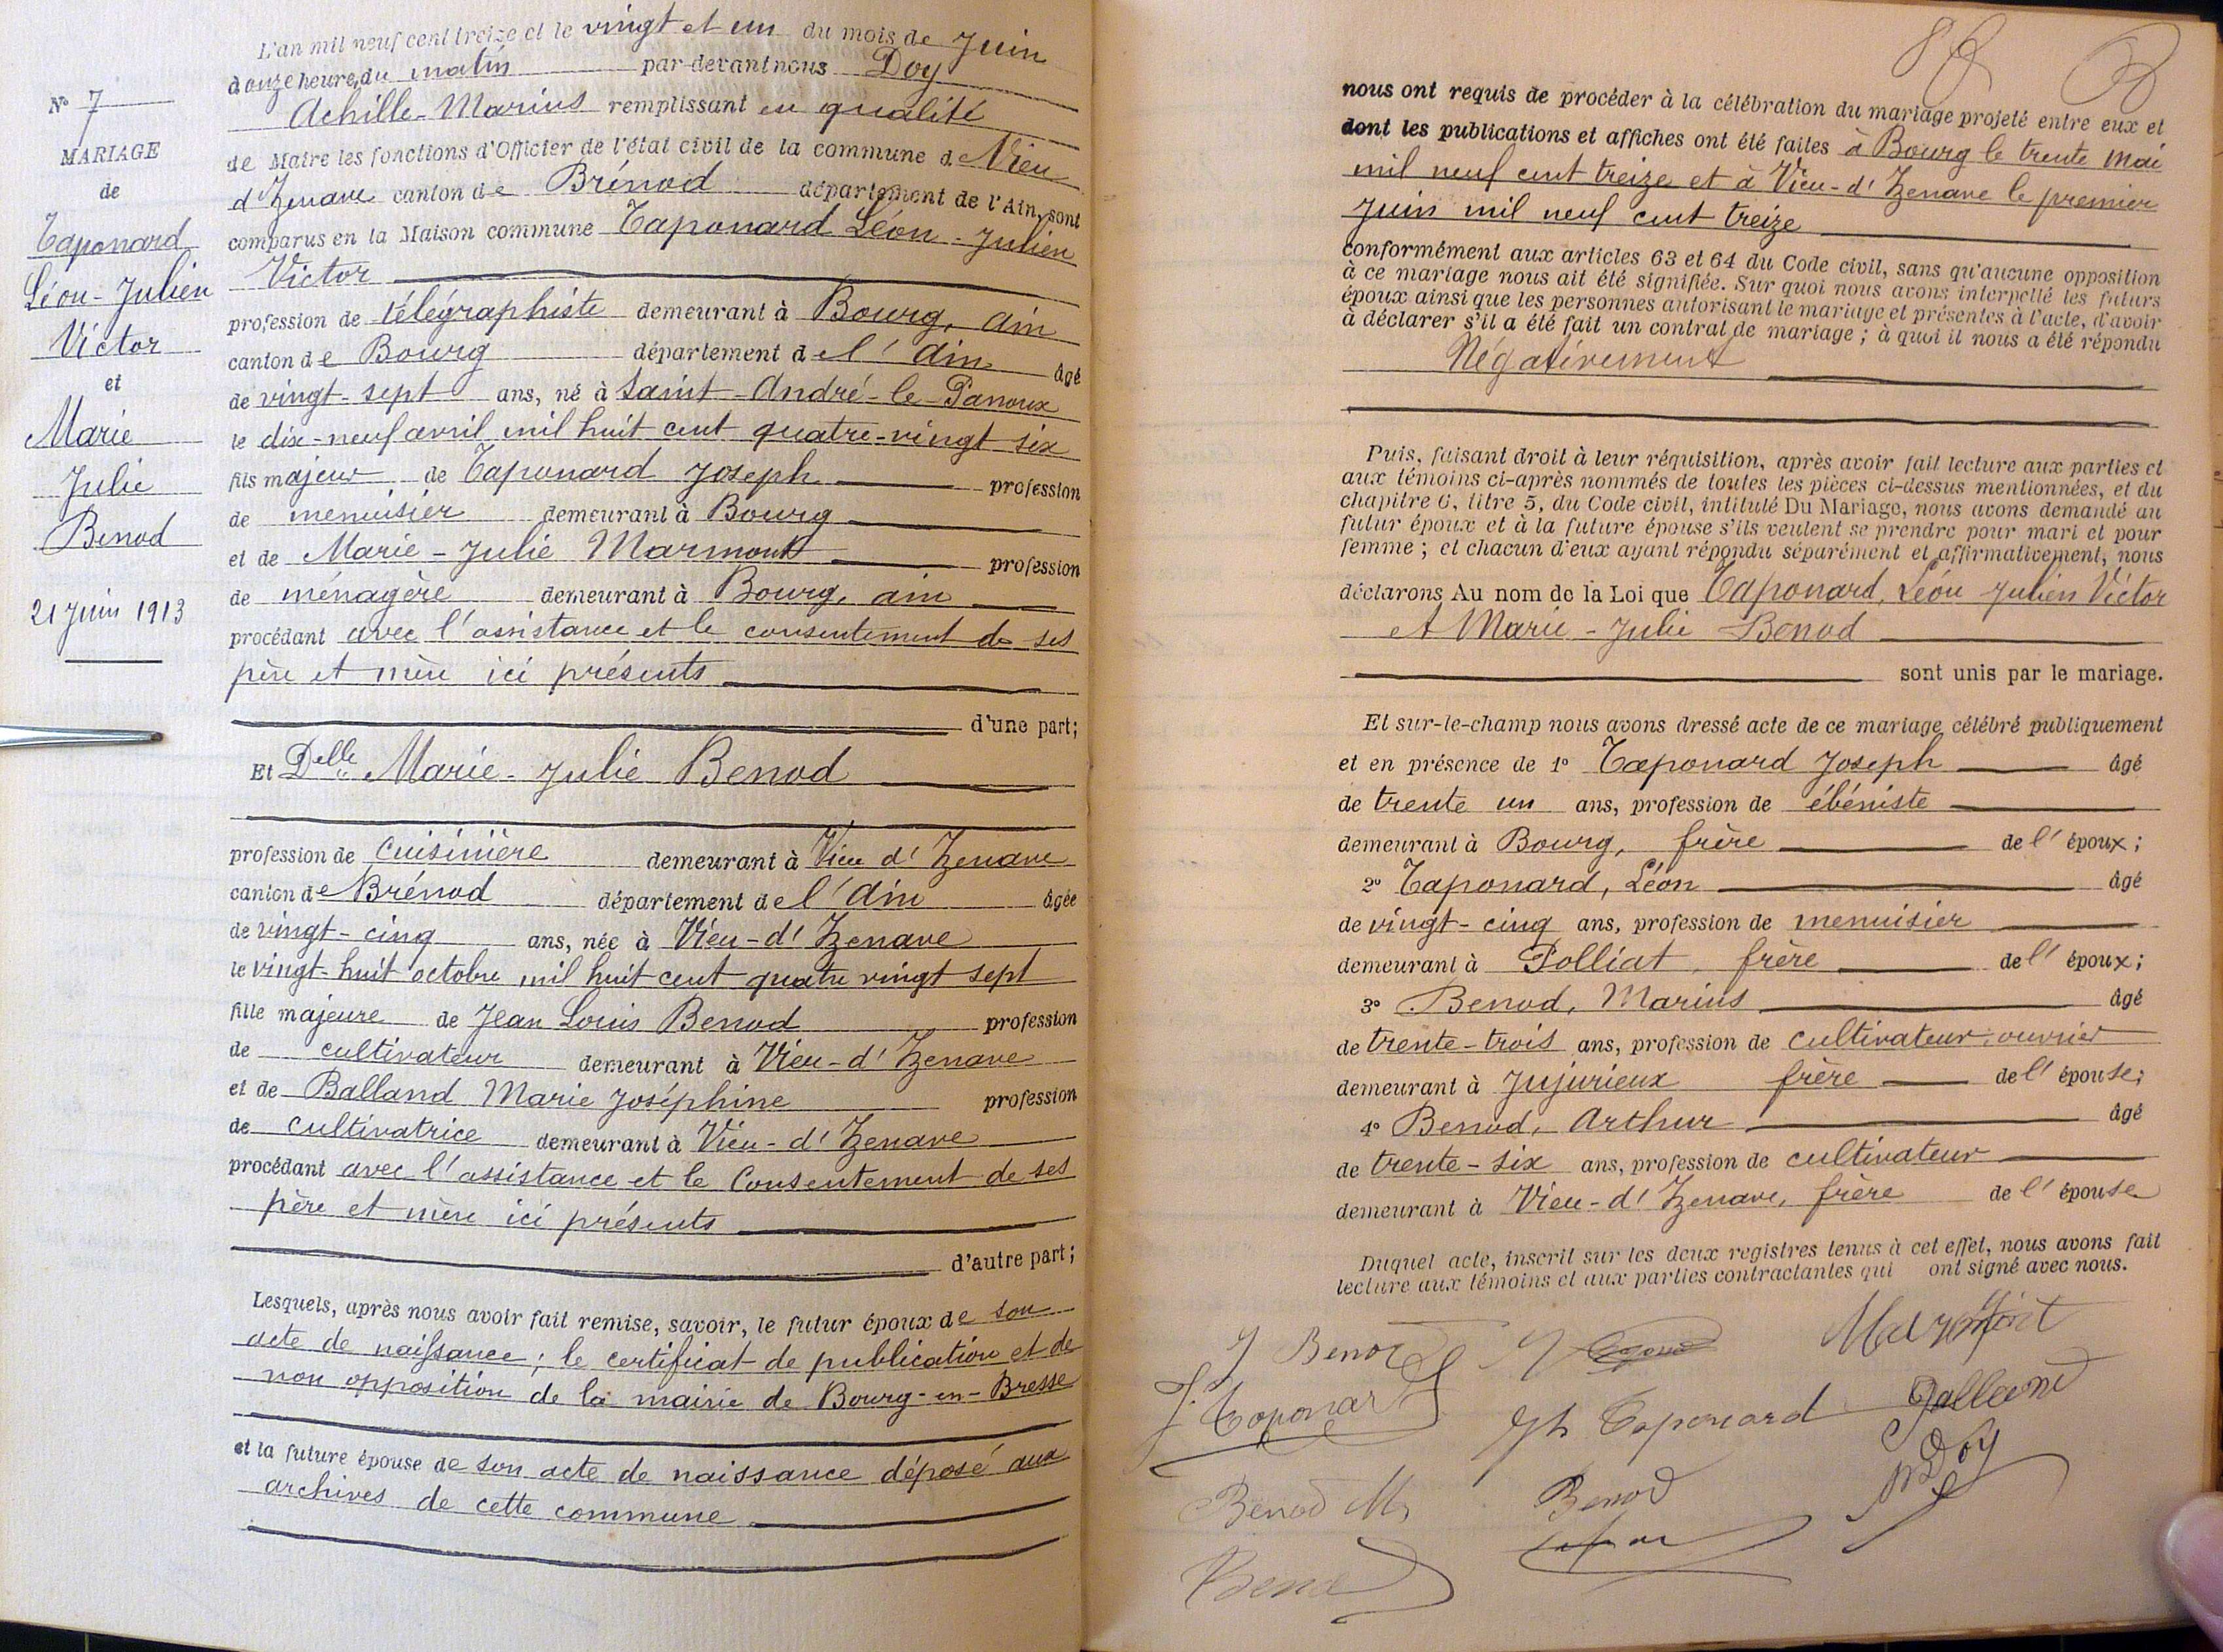 N° 7
MARIAGE
de
Taponard
Léon-Julien
Victor
et
Marie
Julie
Benod
21 Juin 1913
L'an mil neuf cent treize et le vingt et un du mois de Juin
à onze heures du matin par-devant nous Doy
Achille-Marius remplissant en qualité
de Maire les fonctions d'Officier de l'état civil de la commune de Vieu
d'Izenave canton de Brénod département de l'Ain, sont
comparus en la Maison commune Taponard Léon-Julien
Victor
profession de télégraphiste demeurant à Bourg, Ain
canton de Bourg département de l'Ain âgé
de vingt-sept ans, né à Saint-André-le-Panoux
le dix-neuf avril mil huit cent quatre-vingt six
fils majeur de Taponard Joseph profession
de menuisier demeurant à Bourg
et de Marie-Julie Marmont profession
de ménagère demeurant à Bourg, ain
procédant avec l'assistance et le consentement de ses
père et mère ici présents
d'une part;
Et Delle Marie-Julie Benod
profession de Cuisinière demeurant à Vieu d'Izenave
canton de Brénod département de l'Ain âgée
de vingt-cinq ans, née à Vieu-d'Izenave
le vingt-huit octobre mil huit cent quatre vingt sept
fille majeure de Jean Louis Benod profession
de cultivateur demeurant à Vieu-d'Izenave
et de Balland Marie Joséphine profession
de cultivatrice demeurant à Vieu-d'Izenave
procédant avec l'assistance et le Consentement de ses
père et mère ici présents
d'autre part;
Lesquels, après nous avoir fait remise, savoir, le futur époux de son
acte de naissance; le certificat de publication et de
non opposition de la mairie de Bourg-en-Bresse
et la future épouse de son acte de naissance déposé aux
archives de cette commune
nous ont requis de procéder à la célébration du mariage projeté entre eux et
dont les publications et affiches ont été faites à Bourg le trente mai
mil neuf cent treize et à Vieu-d'Izenave le premier
juin mil neuf cent treize
conformément aux articles 63 et 64 du Code civil, sans qu'aucune opposition
à ce mariage nous ait été signifiée. Sur quoi nous avons interpellé les futurs
époux ainsi que les personnes autorisant le mariage et présentes à l'acte, d'avoir
à déclarer s'il a été fait un contrat de mariage; à quoi il nous a été répondu
Négativement
Puis, faisant droit à leur réquisition, après avoir fait lecture aux parties et
aux témoins ci-après nommés de toutes les pièces ci-dessus mentionnées, et du
chapitre 6, titre 5, du Code civil, intitulé Du Mariage, nous avons demandé au
futur époux et à la future épouse s'ils veulent se prendre pour mari et pour
femme; et chacun d'eux ayant répondu séparément et affirmativement, nous
déclarons Au nom de la Loi que Taponard, Léon Julien Victor
et Marie-Julie Benod
sont unis par le mariage.
Et sur-le-champ nous avons dressé acte de ce mariage célébré publiquement
et en présence de 1° Taponard Joseph âgé
de trente un ans, profession de ébéniste
demeurant à Bourg, frère de l'époux;
2° Taponard, Léon âgé
de vingt-cinq ans, profession de menuisier
demeurant à Polliat, frère de l'époux;
3° Benod, Marius âgé
de trente-trois ans, profession de cultivateur, ouvrier
demeurant à Jujurieux frère de l'épouse;
4° Benod, Arthur âgé
de trente-six ans, profession de cultivateur
demeurant à Vieu-d'Izenave, frère de l'épouse
Duquel acte, inscrit sur les deux registres tenus à cet effet, nous avons fait
lecture aux témoins et aux parties contractantes qui ont signé avec nous.
J Benod Marmont
J. Taponard Jh Taponard Balland
Benod M Benod Doy
Benod